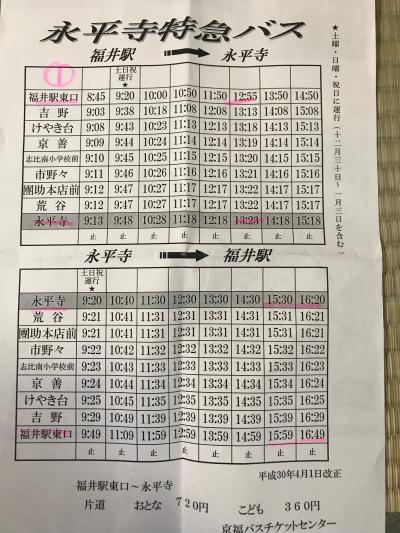 永平寺特急バス
福井駅 永平寺
①
土日祝運行★
福井駅東口 8:45 9:20 10:00 10:50 11:50 12:55 13:50 14:50
吉野 9:03 9:38 10:18 11:08 12:08 13:13 14:08 15:08
けやき台 9:08 9:43 10:23 11:13 12:13 13:18 14:13 15:13
京善 9:09 9:44 10:24 11:14 12:14 13:19 14:14 15:14
志比南小学校前 9:10 9:45 10:25 11:15 12:15 13:20 14:15 15:15
市野々 9:11 9:46 10:26 11:16 12:16 13:21 14:16 15:16
團助本店前 9:12 9:47 10:27 11:17 12:17 13:22 14:17 15:17
荒谷 9:12 9:47 10:27 11:17 12:17 13:22 14:17 15:17
永平寺 9:13 9:48 10:28 11:18 12:18 13:23 14:18 15:18
止 止 止 止 止 止 止 止
永平寺 福井駅
土日祝運行★
永平寺 9:20 10:40 11:30 12:30 13:30 14:30 15:30 16:20
荒谷 9:21 10:41 11:31 12:31 13:31 14:31 15:31 16:21
團助本店前 9:21 10:41 11:31 12:31 13:31 14:31 15:31 16:21
市野々 9:22 10:42 11:32 12:32 13:32 14:32 15:32 16:22
志比南小学校前 9:23 10:43 11:33 12:33 13:33 14:33 15:33 16:23
京善 9:24 10:44 11:34 12:34 13:34 14:34 15:34 16:24
けやき台 9:25 10:45 11:35 12:35 13:35 14:35 15:35 16:25
吉野 9:29 10:49 11:39 12:39 13:39 14:39 15:39 16:29
福井駅東口 9:49 11:09 11:59 12:59 13:59 14:59 15:59 16:49
止 止 止 止 止 止 止 止
★土曜・日曜・祝日に運行(十二月三十日~一月三日を含む)
平成30年4月1日改正
福井駅東口~永平寺
片道 おとな 720円 こども 360円
京福バスチケットセンター